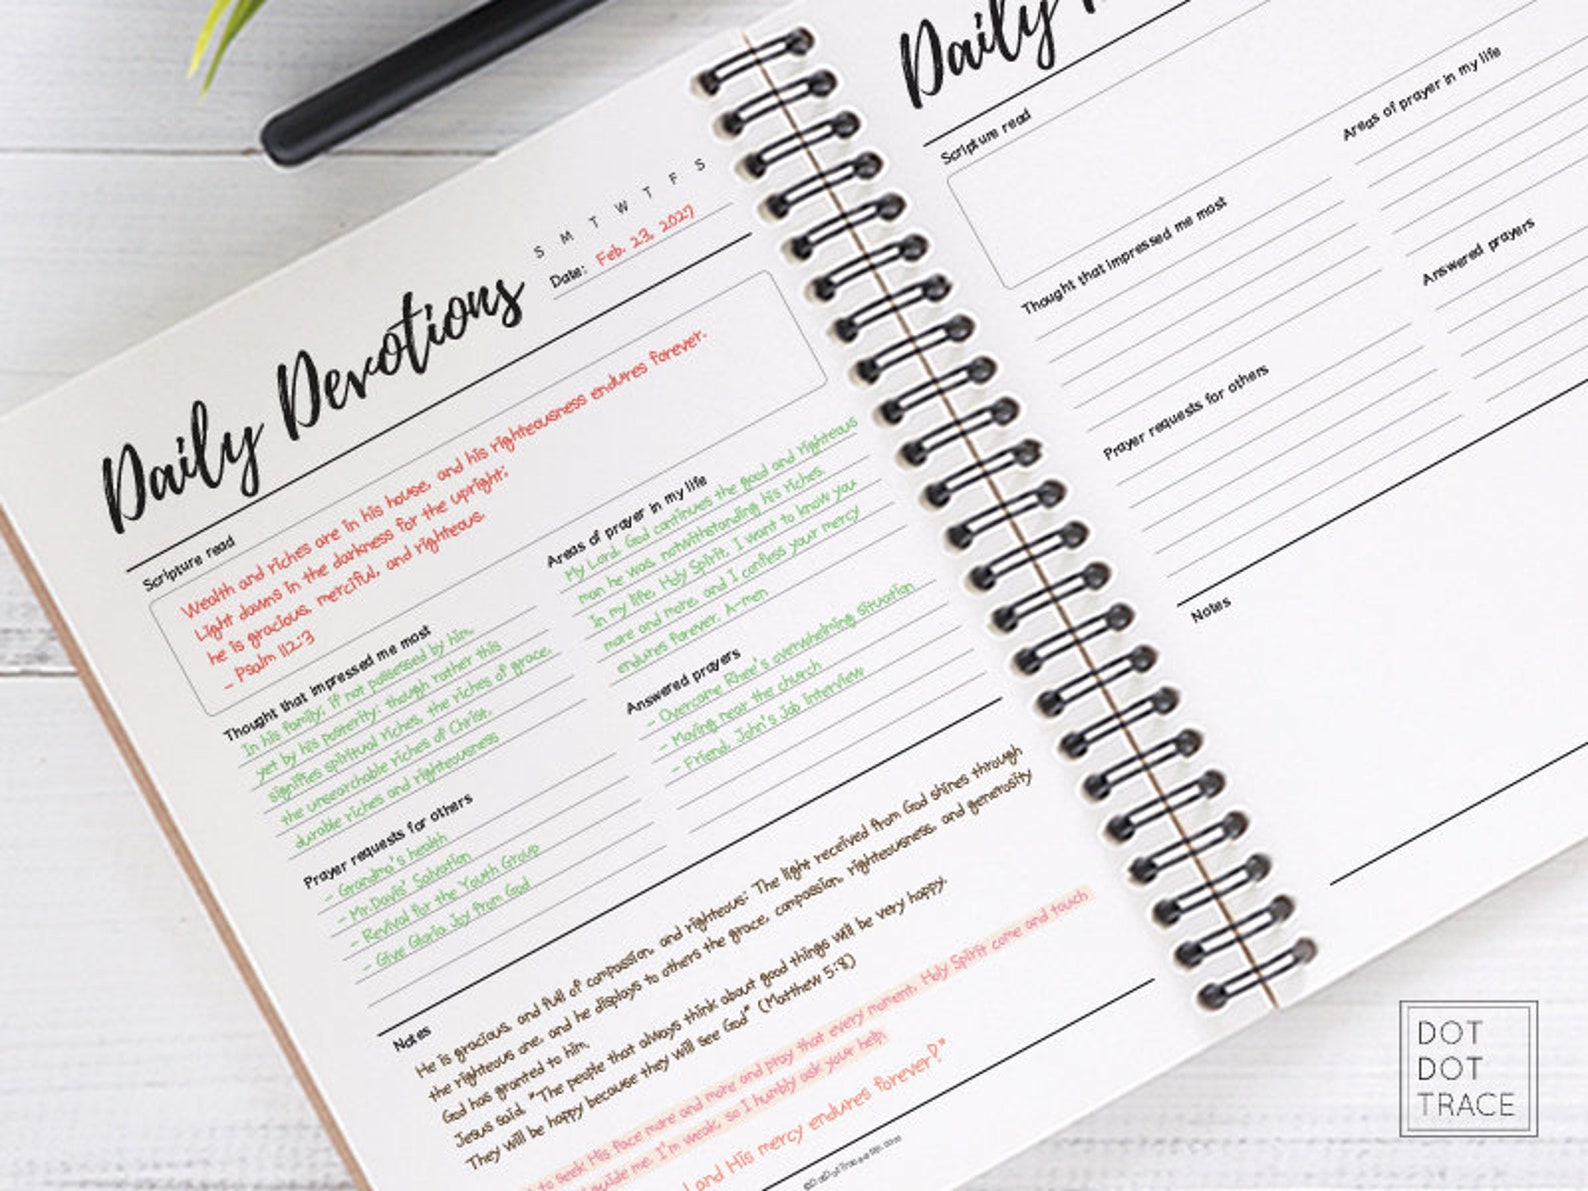 Daily Devotions
S M T W T F S
Date: Feb. 23, 2027
Scripture read
Wealth and riches are in his house, and his righteousness endures forever.
Light dawns in the darkness for the upright;
he is gracious, merciful, and righteous.
- Psalm 112:3
Thought that impressed me most
In his family; if not possessed by him,
yet by his posterity; though rather this
signifies spiritual riches, the riches of grace,
the unsearchable riches of Christ,
durable riches and righteousness
Prayer requests for others
- Grandma's health
- Mr.Davis' Salvation
- Revival for the Youth Group
- Give Gloria Joy from God
Areas of prayer in my life
My Lord, God continues the good and righteous
man he was, notwithstanding his riches.
In my life, Holy Spirit, I want to know you
more and more, and I confess your mercy
endures forever. A-men
Answered prayers
- Overcome Rhee's overwhelming situation
- Moving near the church
- Friend, John's Job Interview
Notes
He is gracious, and full of compassion, and righteous: The light received from God shines through
the righteous one, and he displays to others the grace, compassion, righteousness, and generosity
God has granted to him.
Jesus said, "The people that always think about good things will be very happy.
They will be happy because they will see God" (Matthew 5:8)
to seek His face more and more and pray that every moment, Holy Spirit come and touch
guide me. I'm weak, so I humbly ask your help
and His mercy endures forever!"
Daily
Scripture read
Thought that impressed me most
Prayer requests for others
Areas of prayer in my life
Answered prayers
Notes
DOT
DOT
TRACE